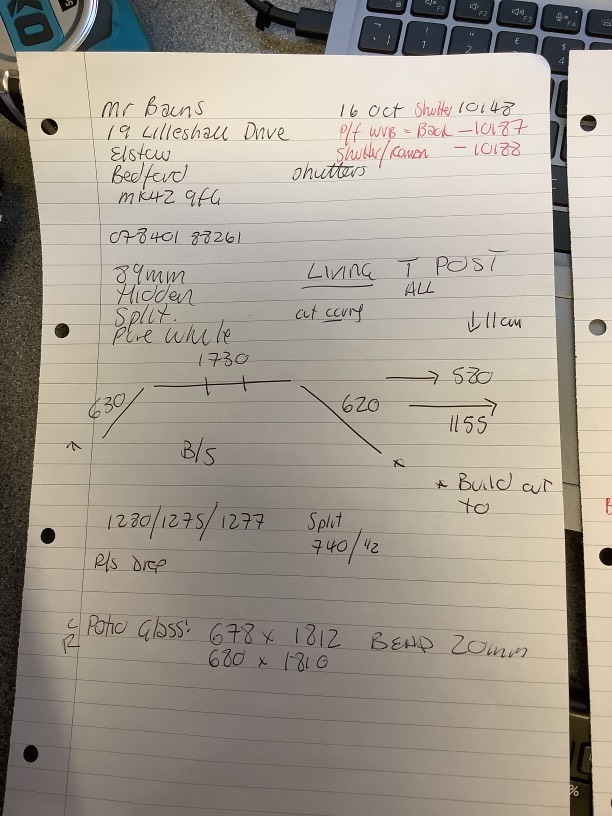 Mr Bains
16 Oct Shutter 10148
19 Lilleshall Drive
P/f WVB = Back - 10187
Elstow
Shutter/Roman - 10188
Bedford
Shutters
MK42 9FG
078401 88261
89mm
LIVING T POST
Hidden
ALL
Split.
cut
↓11cm
Pure White
1730
630
620
→ 580
→ 1155
↑
B/S
* Build out
to
1280/1275/1277
Split
740/42
R/s Drop
L Patio Glass: 678 x 1812 BEAD 20mm
R 680 x 1810